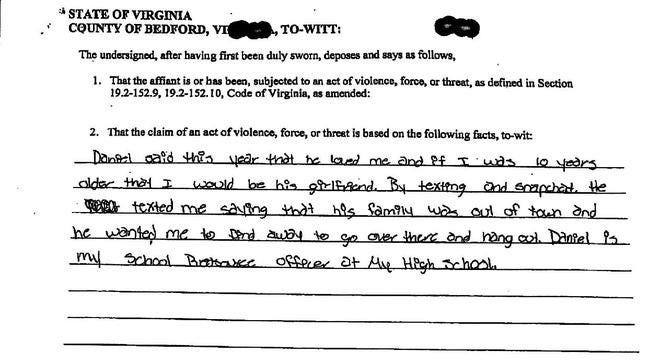 STATE OF VIRGINIA
COUNTY OF BEDFORD, TO-WITT:
The undersigned, after having first been duly sworn, deposes and says as follows,
1. That the affiant is or has been, subjected to an act of violence, force, or threat, as defined in Section
19.2-152.9, 19.2-152.10, Code of Virginia, as amended:
2. That the claim of an act of violence, force, or threat is based on the following facts, to-wit:
Daniel said this year that he loved me and if I was 10 years
older that I would be his girlfriend. By texting and snapchat. He
texted me saying that his family was out of town and
he wanted me to find away to go over there and hang out. Daniel is
my School officer at My High School.